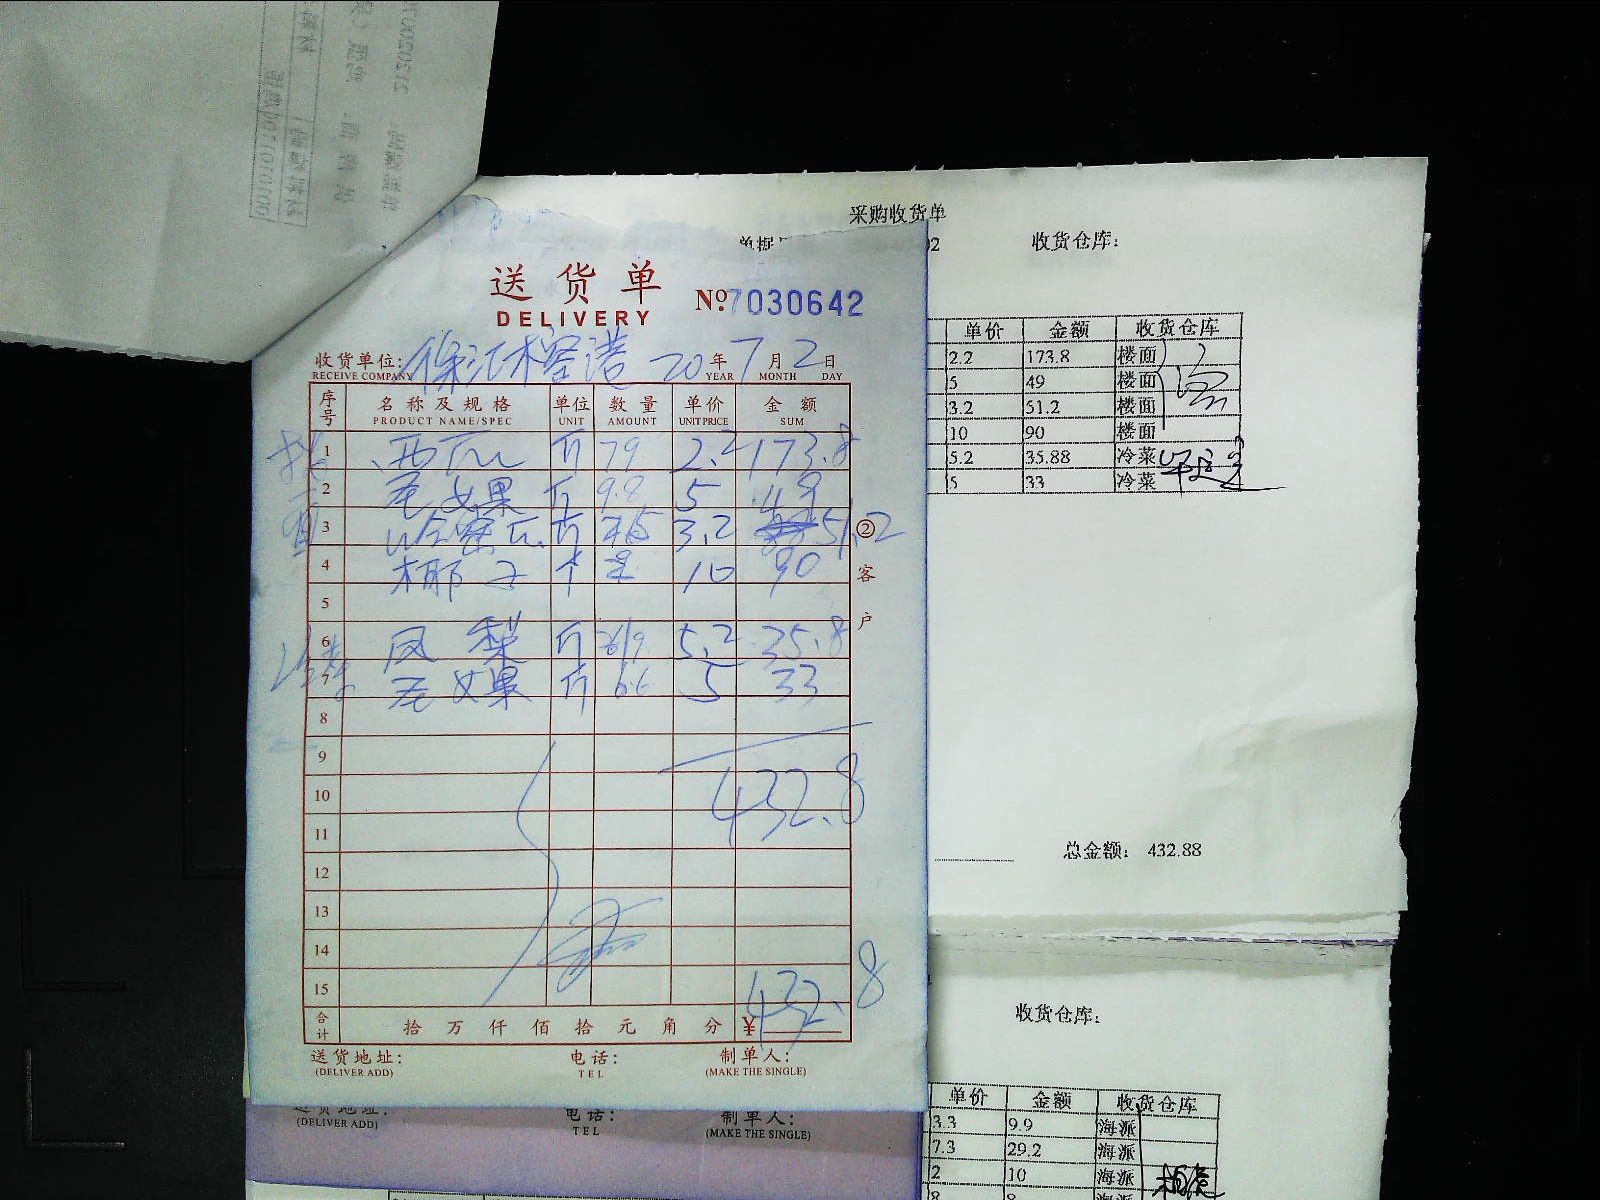 采购收货单
02 收货仓库：
单价 金额 收货仓库
2.2 173.8 楼面
5 49 楼面
3.2 51.2 楼面
10 90 楼面
5.2 35.88 冷菜
5 33 冷菜
总金额： 432.88
送货单
DELIVERY
No.7030642
收货单位： 20 年 7 月 2 日
RECEIVE COMPANY YEAR MONTH DAY
序号 名称及规格 单位 数量 单价 金额
PRODUCT NAME/SPEC UNIT AMOUNT UNIT PRICE SUM
1 西瓜 斤 79 2.2 173.8
2 圣女果 斤 9.8 5 49
3 哈密瓜 斤 3.2 51.2
4 椰子 个 10 90
5
6 凤梨 斤 6.9 5.2 35.8
7 圣女果 斤 6.6 5 33
8
9
10 432.8
11
12
13
14
15
合计 拾 万 仟 佰 拾 元 角 分 ¥ 432.8
② 客户
送货地址： 电话： 制单人：
(DELIVER ADD) TEL (MAKE THE SINGLE)
送货地址： 电话： 制单人：
(DELIVER ADD) TEL (MAKE THE SINGLE)
收货仓库：
单价 金额 收货仓库
3.3 9.9 海派
7.3 29.2 海派
2 10 海派
8 8 海派